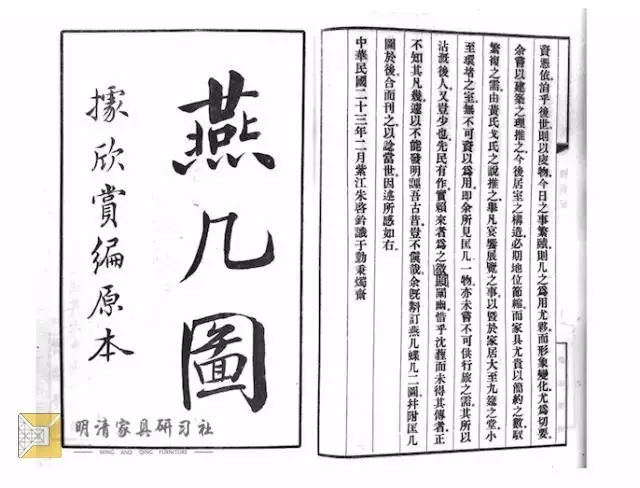 資憑依.洎乎後世.則以庋物.今日之事繁賾.則几之爲用尤夥.而形象變化.尤爲切要.
余嘗以建築之理推之.今後居室之構造.必期地位節縮.而家具尤貴以簡約之數.馭
繁複之需.由黃氏戈氏之說推之.舉凡宴饗展覽之事.以曁於家居.大至九筵之堂.小
至環堵之室.無不可資以爲用.即余所見匡几一物.亦未嘗不可供行旅之需.其所以
沾漑後人.又豈少也.先民有作.實賴來者爲之微顯闡幽.惜乎沈薶而未得其傳者.正
不知其凡幾.遽以不能發明.誣吾古昔.豈不愼哉.余旣斠訂燕几蝶几二圖.幷附匡几
圖於後.合而刊之.以諗當世.因述所感如右.
中華民國二十三年二月紫江朱啓鈐識于勤秉燭齋
燕几圖
據欣賞編原本
明清家具研习社
MING AND QING FURNITURE